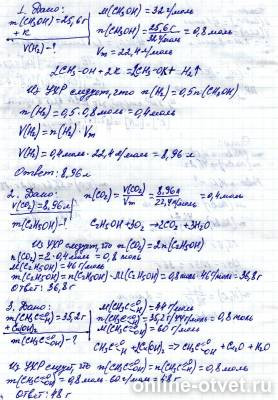 1. Дано:
m(CH₃OH)=25,6г
+K
V(H₂)-?
M(CH₃OH)=32г/моль
n(CH₃OH)=25,6г/32г/моль=0,8моль
Vm=22,4л/моль
2CH₃-OH+2K=2CH₃-OK+H₂↑
Из УХР следует, что n(H₂)=0,5n(CH₃OH)
n(H₂)=0,5·0,8моль=0,4моль
V(H₂)=n(H₂)·Vm
V(H₂)=0,4моль·22,4л/моль=8,96л
Ответ: 8,96л
2. Дано:
V(CO₂)=8,96л
m(C₂H₅OH)-?
n(CO₂)=V(CO₂)/Vm=8,96л/22,4л/моль=0,4моль
C₂H₅OH+3O₂→2CO₂+3H₂O
Из УХР следует, что n(CO₂)=2n(C₂H₅OH)
n(CO₂)=2·0,4моль=0,8моль
M(C₂H₅OH)=46г/моль
m(C₂H₅OH)=n(C₂H₅OH)·M(C₂H₅OH)=0,8моль·46г/моль=36,8г
Ответ: 36,8г
3. Дано:
m(CH₃C=O-H)=35,2г
+Cu(OH)₂
m(CH₃C=O-OH)-?
M(CH₃C=O-H)=44г/моль
n(CH₃C=O-H)=35,2г/44г/моль=0,8моль
M(CH₃C=O-OH)=60г/моль
CH₃C=O-H+2Cu(OH)₂→CH₃C=O-OH+Cu₂O+H₂O
Из УХР следует, что n(CH₃C=O-OH)=n(CH₃C=O-H)=0,8моль
m(CH₃C=O-OH)=0,8моль·60г/моль=48г
Ответ: 48г
online-otvet.ru